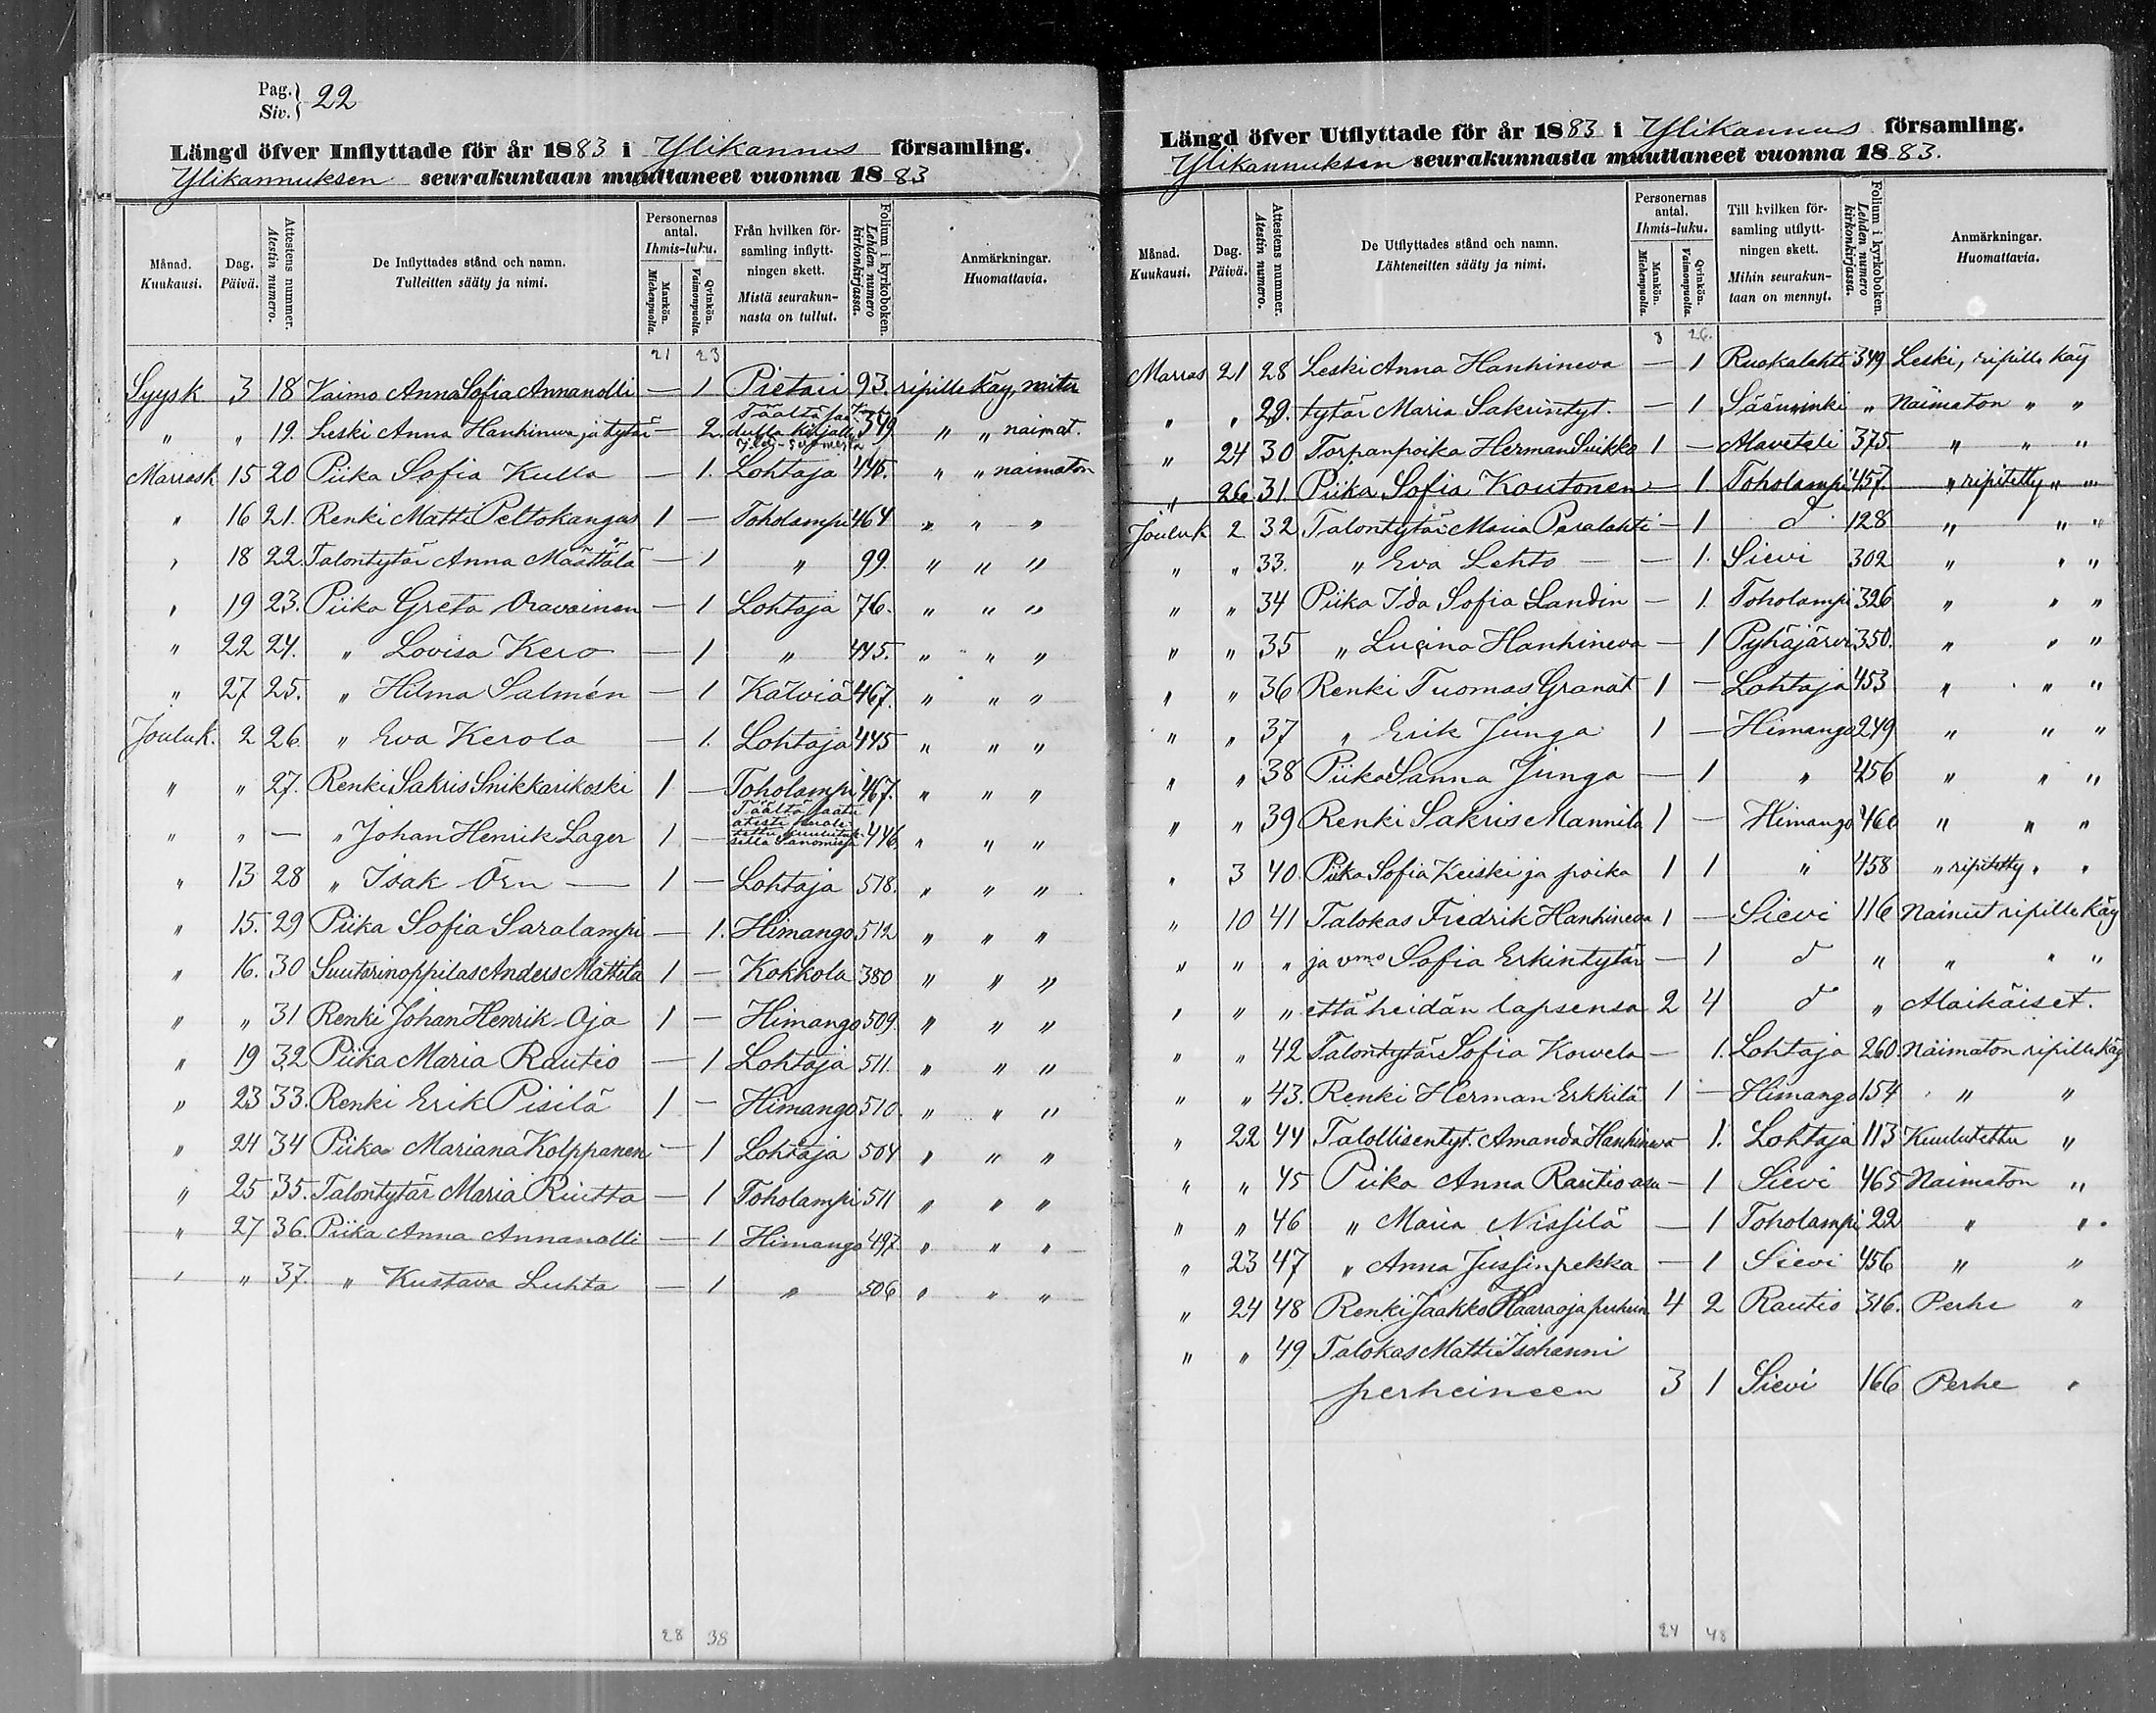 Pag. } 22
Siv. }
Längd öfver Inflyttade för år 1883 i Ylikannus församling.
Ylikannuksen seurakuntaan muuttaneet vuonna 1883
Månad. Kuukausi. | Dag. Päivä. | Attestens nummer. Atestin numero. | De Inflyttades stånd och namn. Tulleitten sääty ja nimi. | Personernas antal. Ihmis-luku. Mankön. Miehenpuolta. | Qvinkön. Vaimonpuolta. | Från hvilken församling inflyttningen skett. Mistä seurakunnasta on tullut. | Folium i kyrkoboken. Lehden numero kirkonkirjassa. | Anmärkningar. Huomattavia.
21 23
Syysk 3 18 Vaimo Anna Sofia Annanolli — 1 Pietari 93. ripille käy, naitu
" " 19. Leski Anna Hanhineva ja tytär — 2. Täältä 349 " " naimat.
Marrask 15 20 Piika Sofia Kulla — 1. Lohtaja 445. " " naimaton
" 16 21. Renki Matti Peltokangas 1 — Toholampi 464 " " "
" 18 22. Talontytär Anna Määttälä — 1 " 99. " " "
" 19 23. Piika Greta Oravainen — 1 Lohtaja 76. " " "
" 22 24. " Lovisa Kero — 1 " 445. " " "
" 27 25. " Hilma Salmén — 1 Kälviä 467. " " "
Jouluk. 2 26 " Eva Kerola — 1. Lohtaja 445 " " "
" " 27. Renki Sakris Snikkarikoski 1 — Toholampi 467. " " "
" " — " Johan Henrik Lager 1 — Täältä saatu 446. " " "
" 13 28 " Isak Örn — 1 — Lohtaja 518. " " "
" 15. 29 Piika Sofia Saralampi — 1. Himango 512 " " "
" 16. 30 Suutarinoppilas Anders Mattila 1 — Kokkola 380 " " "
" " 31 Renki Johan Henrik Oja 1 — Himango 509. " " "
" 19 32 Piika Maria Rautio — 1 Lohtaja 511. " " "
" 23 33. Renki Erik Pisilä 1 — Himango 510. " " "
" 24 34 Piika Mariana Kolppanen — 1 Lohtaja 504 " " "
" 25 35. Talontytär Maria Riutta — 1 Toholampi 511 " " "
" 27 36. Piika Anna Annanolli — 1 Himango 497. " " "
" " 37. " Kustava Luhta — 1 " 506 " " "
28 38
Längd öfver Utflyttade för år 1883 i Ylikannus församling.
Ylikannuksen seurakunnasta muuttaneet vuonna 1883.
Månad. Kuukausi. | Dag. Päivä. | Attestens nummer. Atestin numero. | De Utflyttades stånd och namn. Lähteneitten sääty ja nimi. | Personernas antal. Ihmis-luku. Mankön. Miehenpuolta. | Qvinkön. Vaimonpuolta. | Till hvilken församling utflyttningen skett. Mihin seurakuntaan on mennyt. | Folium i kyrkoboken. Lehden numero kirkonkirjassa. | Anmärkningar. Huomattavia.
8 26.
Marras 21 28 Leski Anna Hanhineva — 1 Ruokalahti 349 Leski, ripille käy
" " 29. tytär Maria Sakrintyt. — 1 Sääminki " Naimaton " "
" 24 30 Torpanpoika Herman Suikko 1 — Alaveteli 375 " " "
" 26 31. Piika Sofia Koutonen — 1. Toholampi 457. " ripitetty " "
Jouluk 2 32 Talontytär Maria Paralahti — 1 d 128 " " "
" " 33. " Eva Lehto — — 1. Sievi 302 " " "
" " 34 Piika Ida Sofia Landin — 1. Toholampi 326 " " "
" " 35 " Lucina Hanhineva — 1 Pyhäjärvi 350. " " "
" " 36 Renki Tuomas Granat 1 — Lohtaja 453 " " "
" " 37 " Erik Junga 1 — Himango 249 " " "
" " 38 Piika Sanna Junga — 1 " 456 " " "
" " 39 Renki Sakris Mannila 1 — Himango 460 " " "
" 3 40. Piika Sofia Keiski ja poika 1 1 " 458 " ripitetty " "
" 10 41 Talokas Fredrik Hanhineva 1 — Sievi 116 Nainut ripille käy
" " " ja vmo Sofia Erkintytär — 1 d " " " "
" " " että heidän lapsensa 2 4 d " Alaikäiset.
" " 42 Talontytär Sofia Kowela — 1. Lohtaja 260 Naimaton ripille käy
" " 43. Renki Herman Erkkilä 1 — Himango 154 " "
" 22 44 Talollisentyt. Amanda Hanhineva — 1. Lohtaja 113 Kuulutettu "
" " 45 Piika Anna Rautioaa — 1 Sievi 465 Naimaton "
" " 46 " Maria Nissilä — 1 Toholampi 22 " "
" 23 47 " Anna Jussinpekka — 1 Sievi 456 " "
" 24 48 Renki Jaakko Haaraoja perhein 4 2 Rautio 316. Perhe "
" " 49 Talokas Matti Isohanni
perheineen 3 1 Sievi 166 Perhe "
24 48